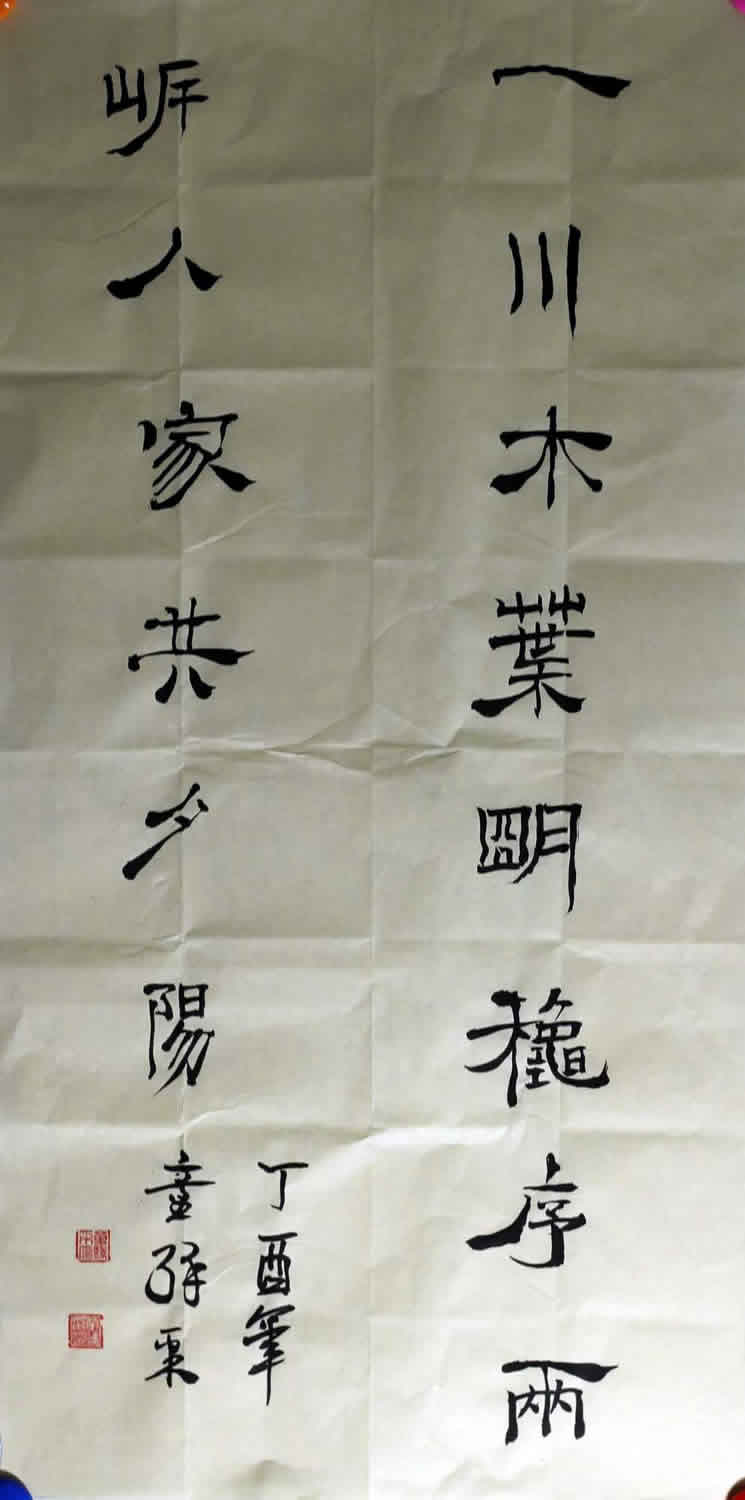 一川木葉朙龝序兩
岸人家共夕陽
丁酉年
童